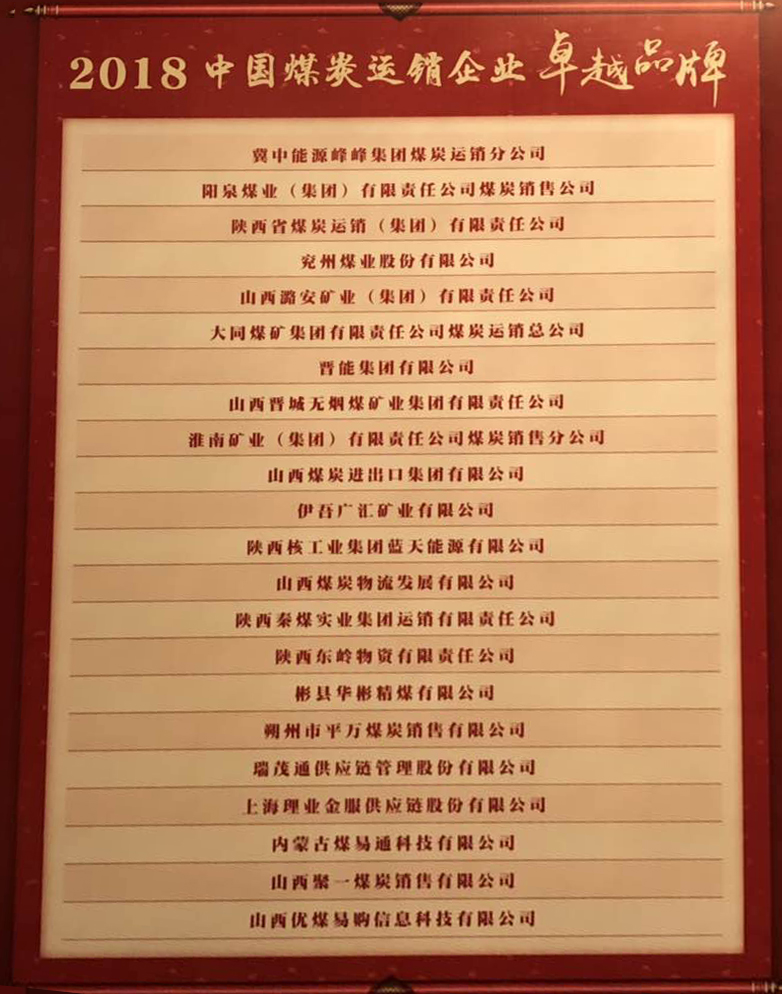 2018 中国煤炭运销企业 卓越品牌
冀中能源峰峰集团煤炭运销分公司
阳泉煤业（集团）有限责任公司煤炭销售公司
陕西省煤炭运销（集团）有限责任公司
兖州煤业股份有限公司
山西潞安矿业（集团）有限责任公司
大同煤矿集团有限责任公司煤炭运销总公司
晋能集团有限公司
山西晋城无烟煤矿业集团有限责任公司
淮南矿业（集团）有限责任公司煤炭销售分公司
山西煤炭进出口集团有限公司
伊吾广汇矿业有限公司
陕西核工业集团蓝天能源有限公司
山西煤炭物流发展有限公司
陕西秦煤实业集团运销有限责任公司
陕西东岭物资有限责任公司
彬县华彬精煤有限公司
朔州市平万煤炭销售有限公司
瑞茂通供应链管理股份有限公司
上海理业金服供应链股份有限公司
内蒙古煤易通科技有限公司
山西聚一煤炭销售有限公司
山西优煤易购信息科技有限公司